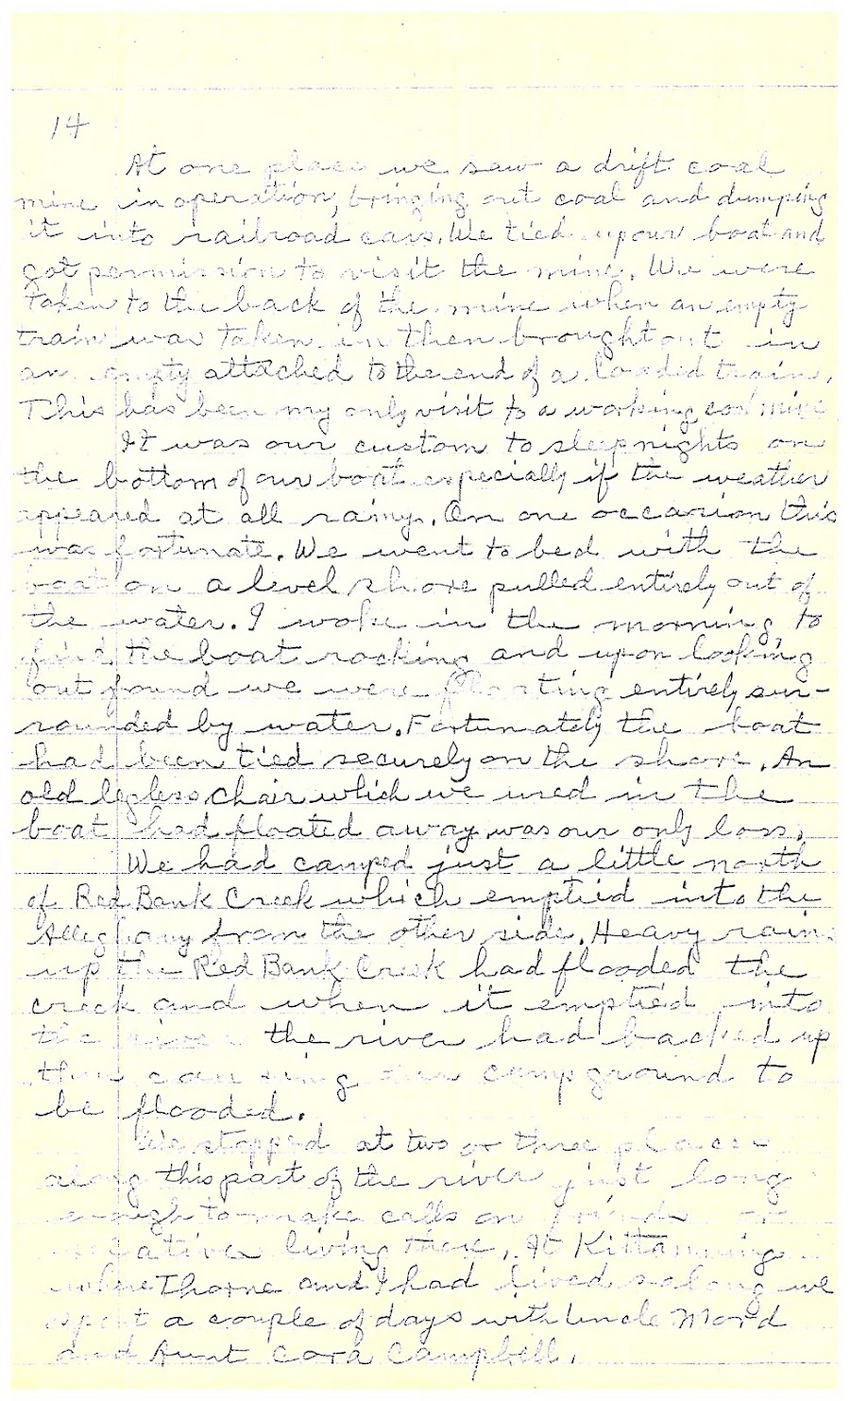 14
At one place we saw a drift coal
mine in operation, bringing out coal and dumping
it into railroad cars. We tied up our boat and
got permission to visit the mine. We were
taken to the back of the mine when an empty
train was taken in then brought out in
an empty attached to the end of a loaded train.
This has been my only visit to a working coal mine
It was our custom to sleep nights on
the bottom of our boat especially if the weather
appeared at all rainy. On one occasion this
was fortunate. We went to bed with the
boat on a level shore pulled entirely out of
the water. I woke in the morning to
find the boat rocking and upon looking
out found we were floating entirely sur-
rounded by water. Fortunately the boat
had been tied securely on the shore. An
old legless chair which we used in the
boat had floated away was our only loss.
We had camped just a little north
of Red Bank Creek which emptied into the
Alleghany from the other side. Heavy rains
up the Red Bank Creek had flooded the
creek and when it emptied into
the river the river had backed up
thus causing our campground to
be flooded.
We stopped at two or three places
along this part of the river just long
enough to make calls on friends or
relatives living there. At Kittanning
where Thorne and I had lived so long we
spent a couple of days with Uncle Mord
and Aunt Cora Campbell.